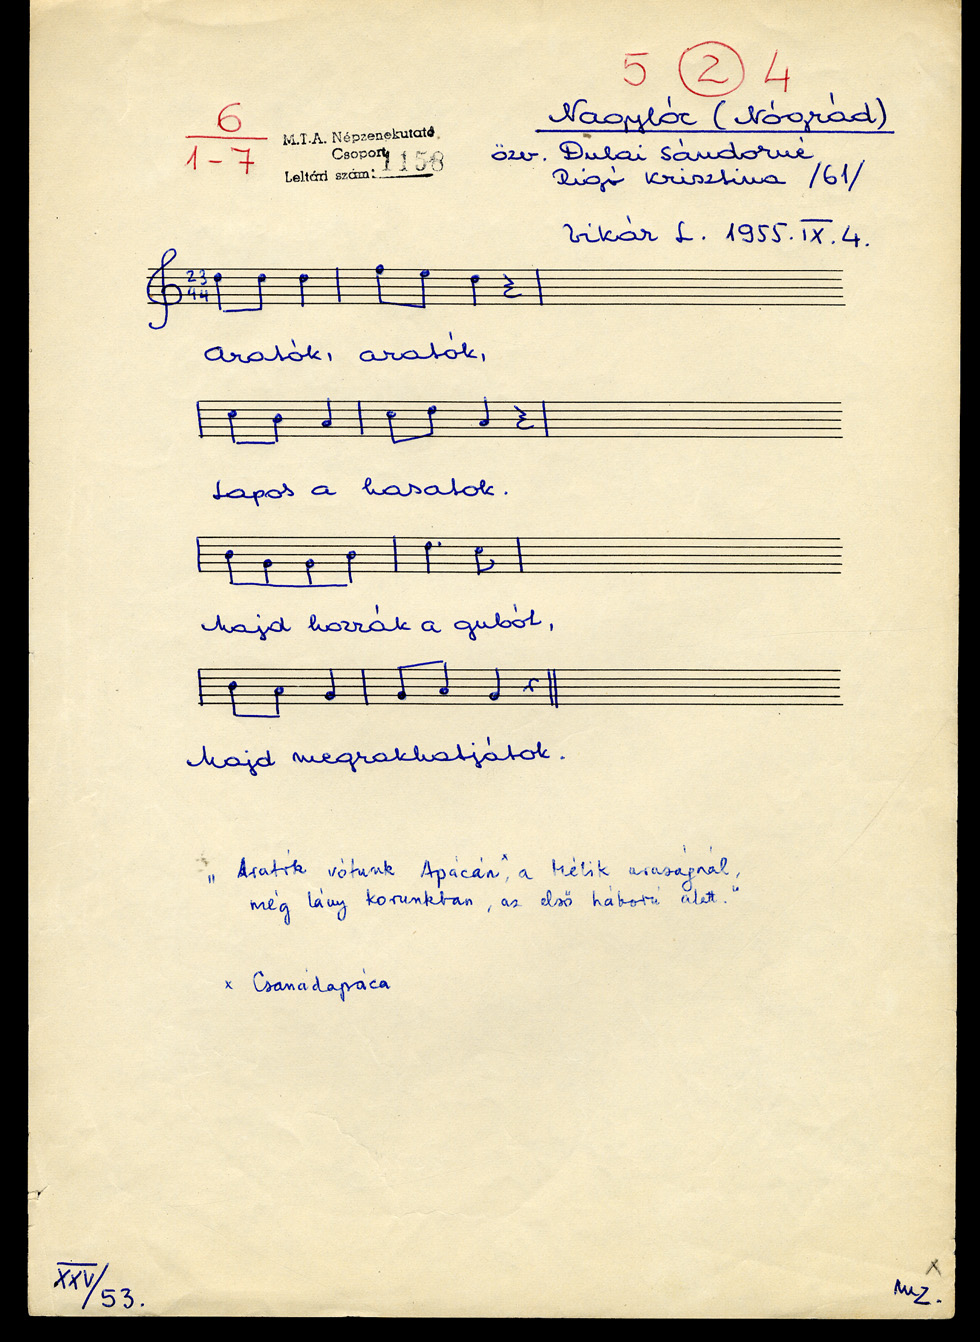 5 2 4
6
1-7
M.T.A. Népzenekutató
Csoport
Leltári szám: 1158
Nagylóc (Nógrád)
özv. Dulai Sándorné
Rigó Krisztina /61/
Vikár L. 1955. IX. 4.
23
44
Aratók, aratók,
Lapos a hasatok.
Majd hozzák a gubót,
Majd megrakhatjátok.
"Aratók vótunk Apácán x, a Mélik uraságnál,
még lány korunkban, az első háború alatt."
x Csanádapráca
XXV/53.
x
MZ.